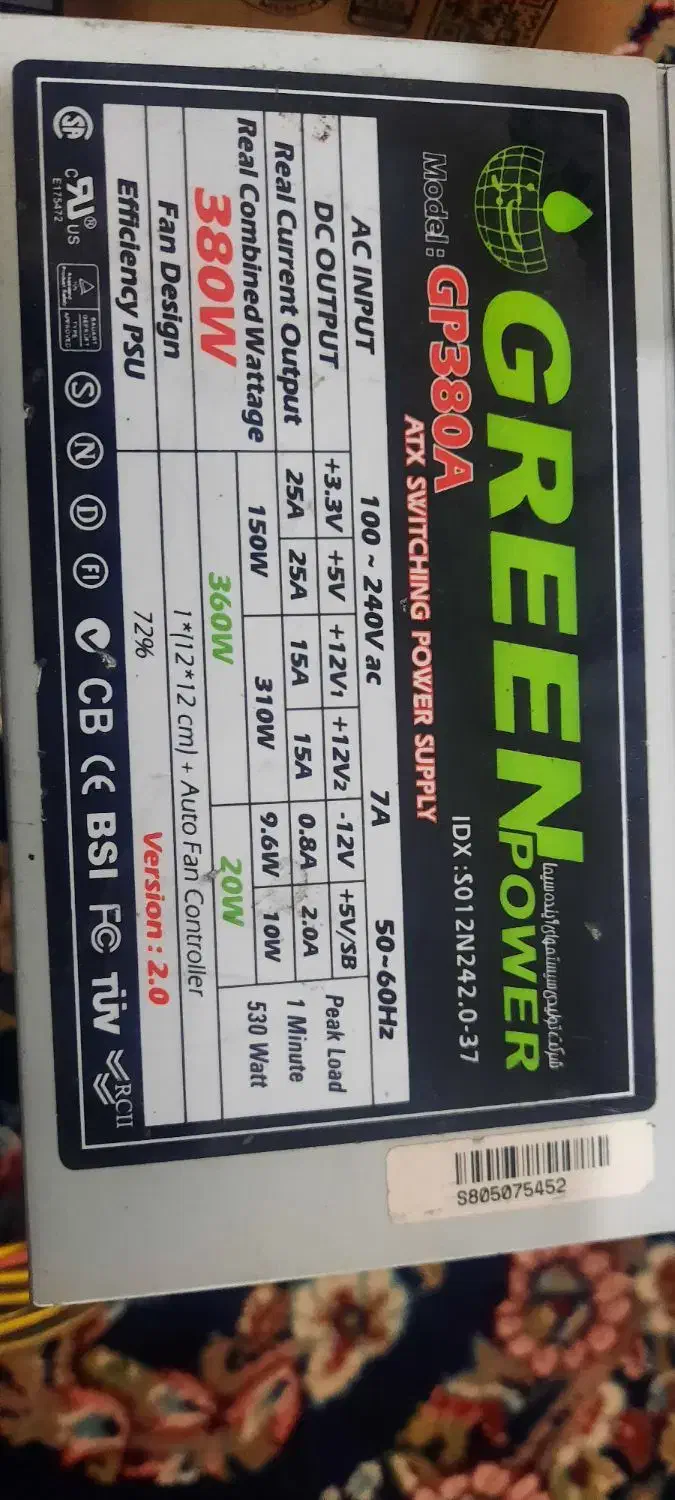 GREEN
POWER
شرکت تولیدی سیستمهای آینده سیما
Model : GP380A
IDX :S012N242.0-37
ATX SWITCHING POWER SUPPLY
AC INPUT 100 ~ 240V ac 7A 50~60Hz
DC OUTPUT +3.3V +5V +12V1 +12V2 -12V +5V/SB Peak Load
Real Current Output 25A 25A 15A 15A 0.8A 2.0A 1 Minute
Real Combined Wattage 150W 310W 9.6W 10W 530 Watt
380W 360W 20W
Fan Design 1*(12*12 cm) + Auto Fan Controller
Efficiency PSU 72% Version : 2.0
SA C US ® S N D FI CB CE BSI FC TÜV RCII
E175472
TYPE
APPROVED
S805075452